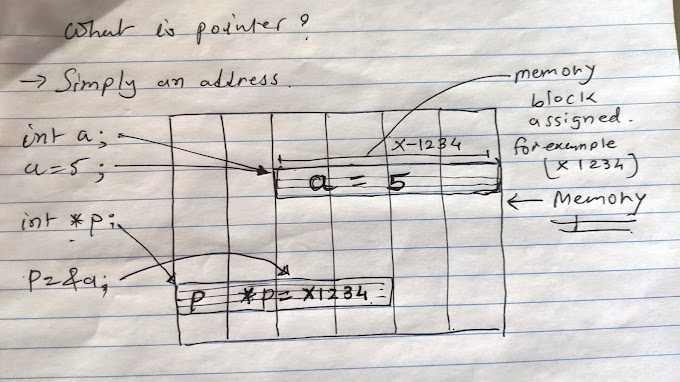 What is pointer?
→ Simply an address.
int a;
a=5;
int *p;
p=&a;
memory
block
assigned.
for example
(x1234)
← Memory
x-1234
a = 5
p *p= x1234